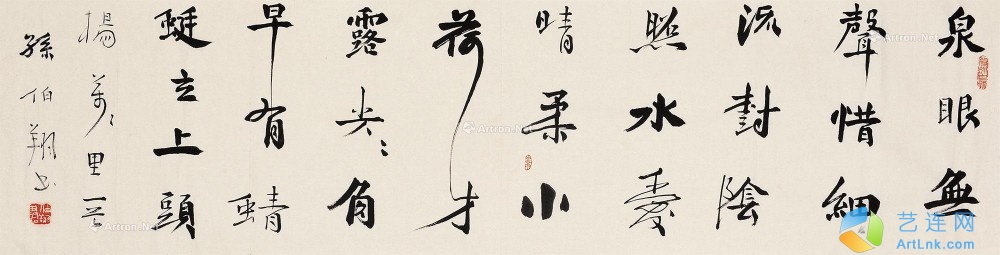 泉眼無
聲惜細
流封陰
照水愛
晴柔小
荷才
露尖々角
早有蜻
蜓立上頭
楊萬里一首
孫伯翔書
艺连网
ArtLnk.com
Artron.Net